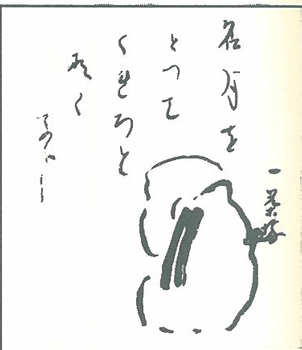 名月を
とつて
くれろと
泣く
子かな
一茶